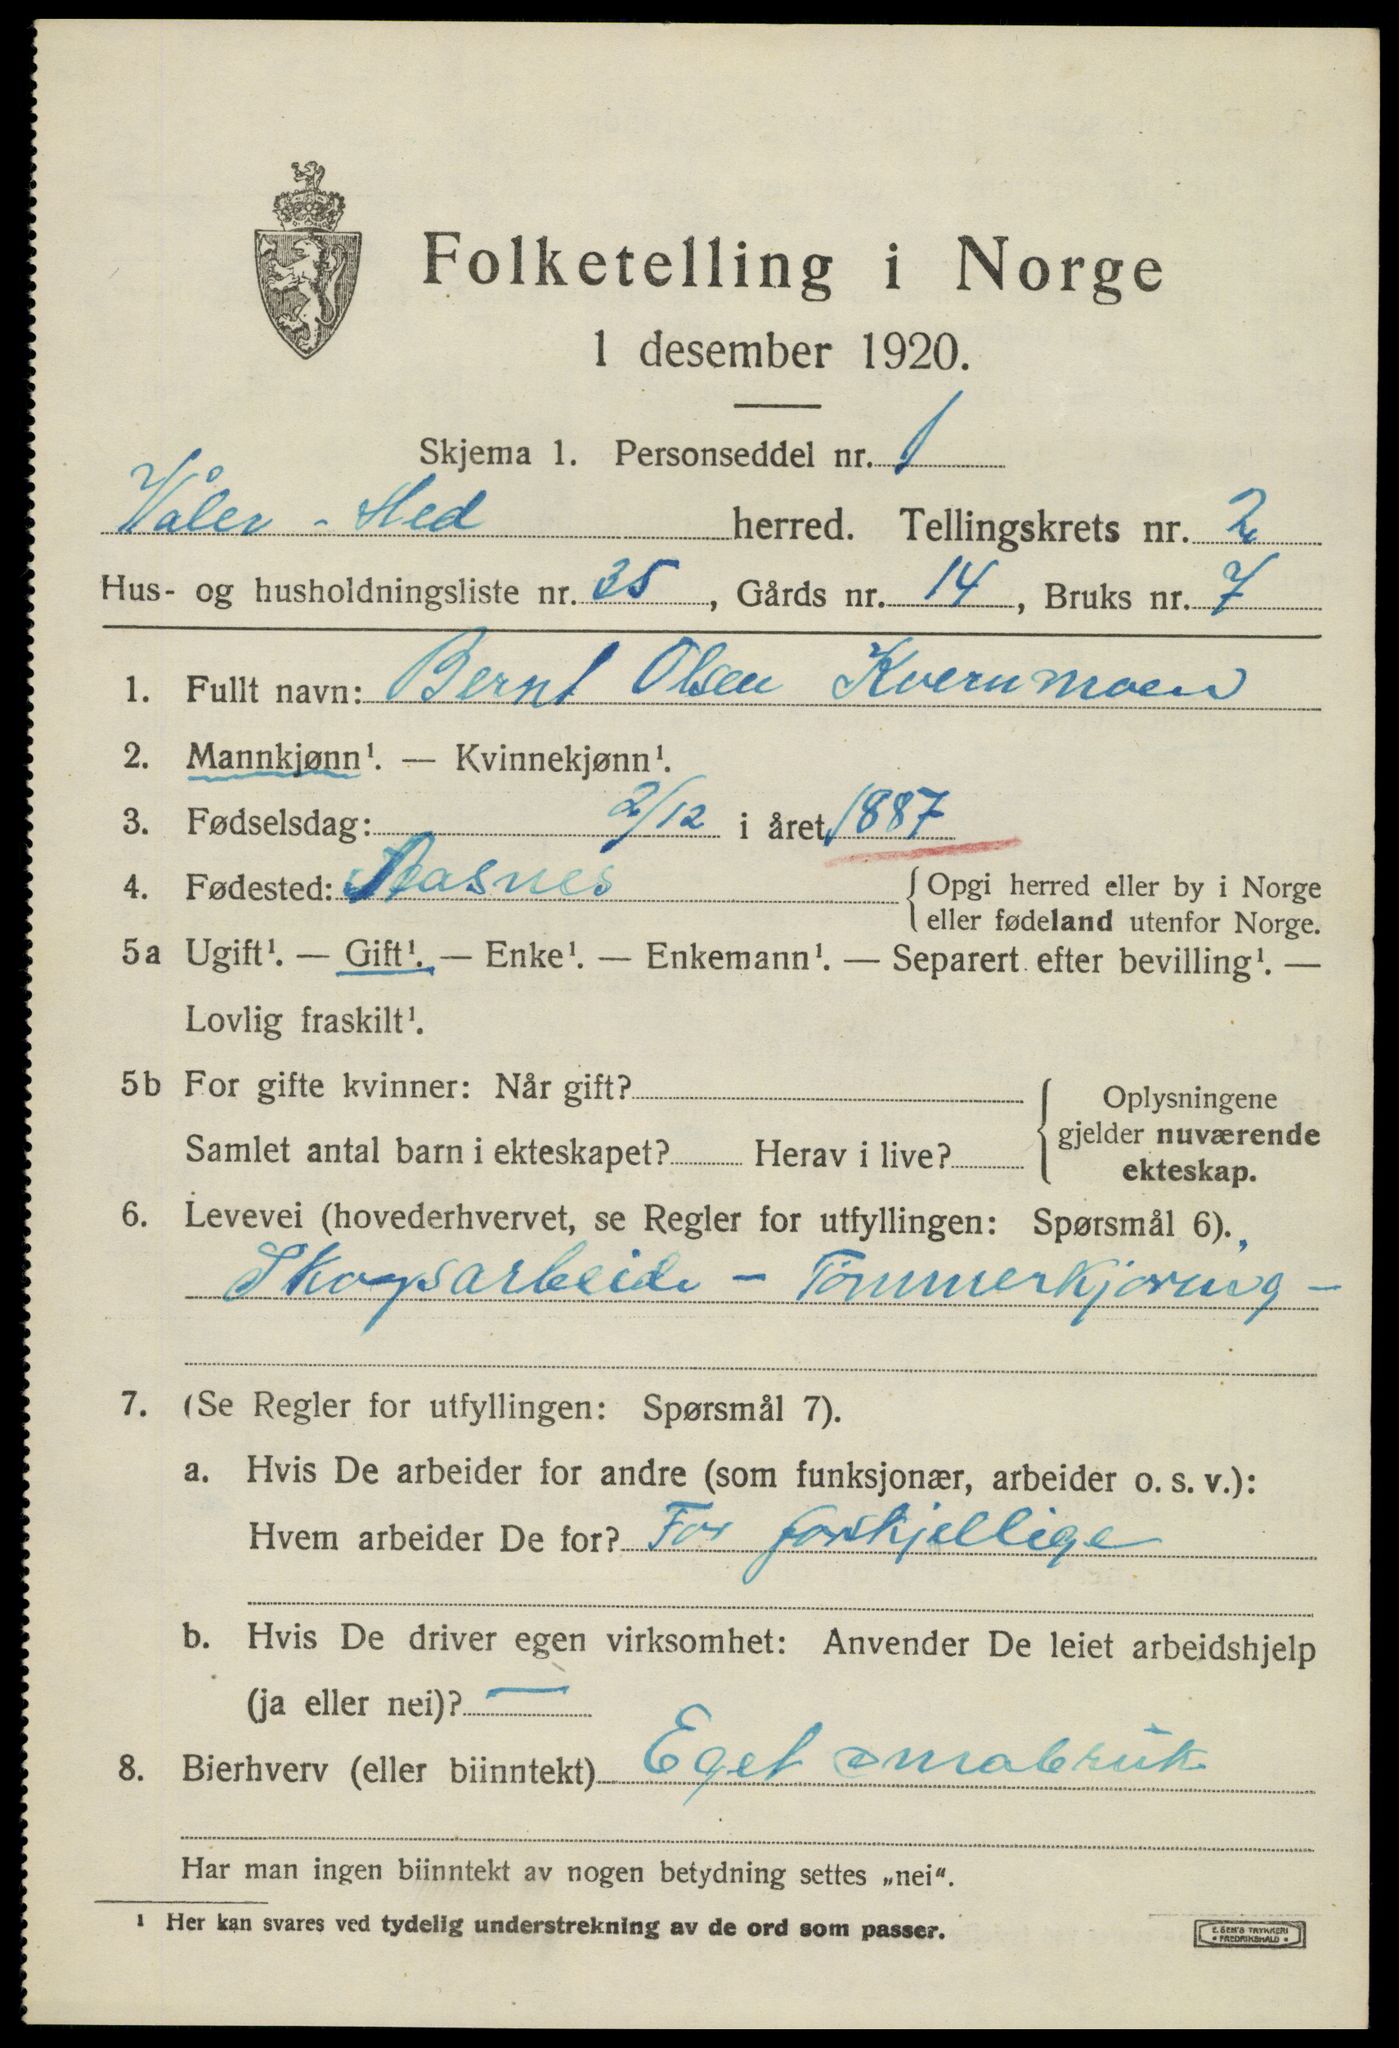 Folketelling i Norge
1 desember 1920.
Skjema 1. Personseddel nr. 1
Våler - Hed herred. Tellingskrets nr. 2
Hus- og husholdningsliste nr. 35, Gårds nr. 14, Bruks nr. 7
1. Fullt navn: Bernt Olsen Kvernmoen
2. Mannkjønn¹. — Kvinnekjønn¹.
3. Fødselsdag: 2/12 i året 1887
4. Fødested: Aasnes { Opgi herred eller by i Norge
eller fødeland utenfor Norge.
5a Ugift¹. — Gift¹. — Enke¹. — Enkemann¹. — Separert efter bevilling¹. —
Lovlig fraskilt¹.
5b For gifte kvinner: Når gift?
Samlet antal barn i ekteskapet? Herav i live?
{ Oplysningene
gjelder nuværende
ekteskap.
6. Levevei (hovederhvervet, se Regler for utfyllingen: Spørsmål 6).
Skogsarbeide - Tömmerkjøring -
7. (Se Regler for utfyllingen: Spørsmål 7).
a. Hvis De arbeider for andre (som funksjonær, arbeider o. s. v.):
Hvem arbeider De for? For forskjellige
b. Hvis De driver egen virksomhet: Anvender De leiet arbeidshjelp
(ja eller nei)? —
8. Bierhverv (eller biinntekt) Eget smabruk
Har man ingen biinntekt av nogen betydning settes „nei“.
¹ Her kan svares ved tydelig understrekning av de ord som passer.
E. SEM'S TRYKKERI
• FREDRIKSHALD •